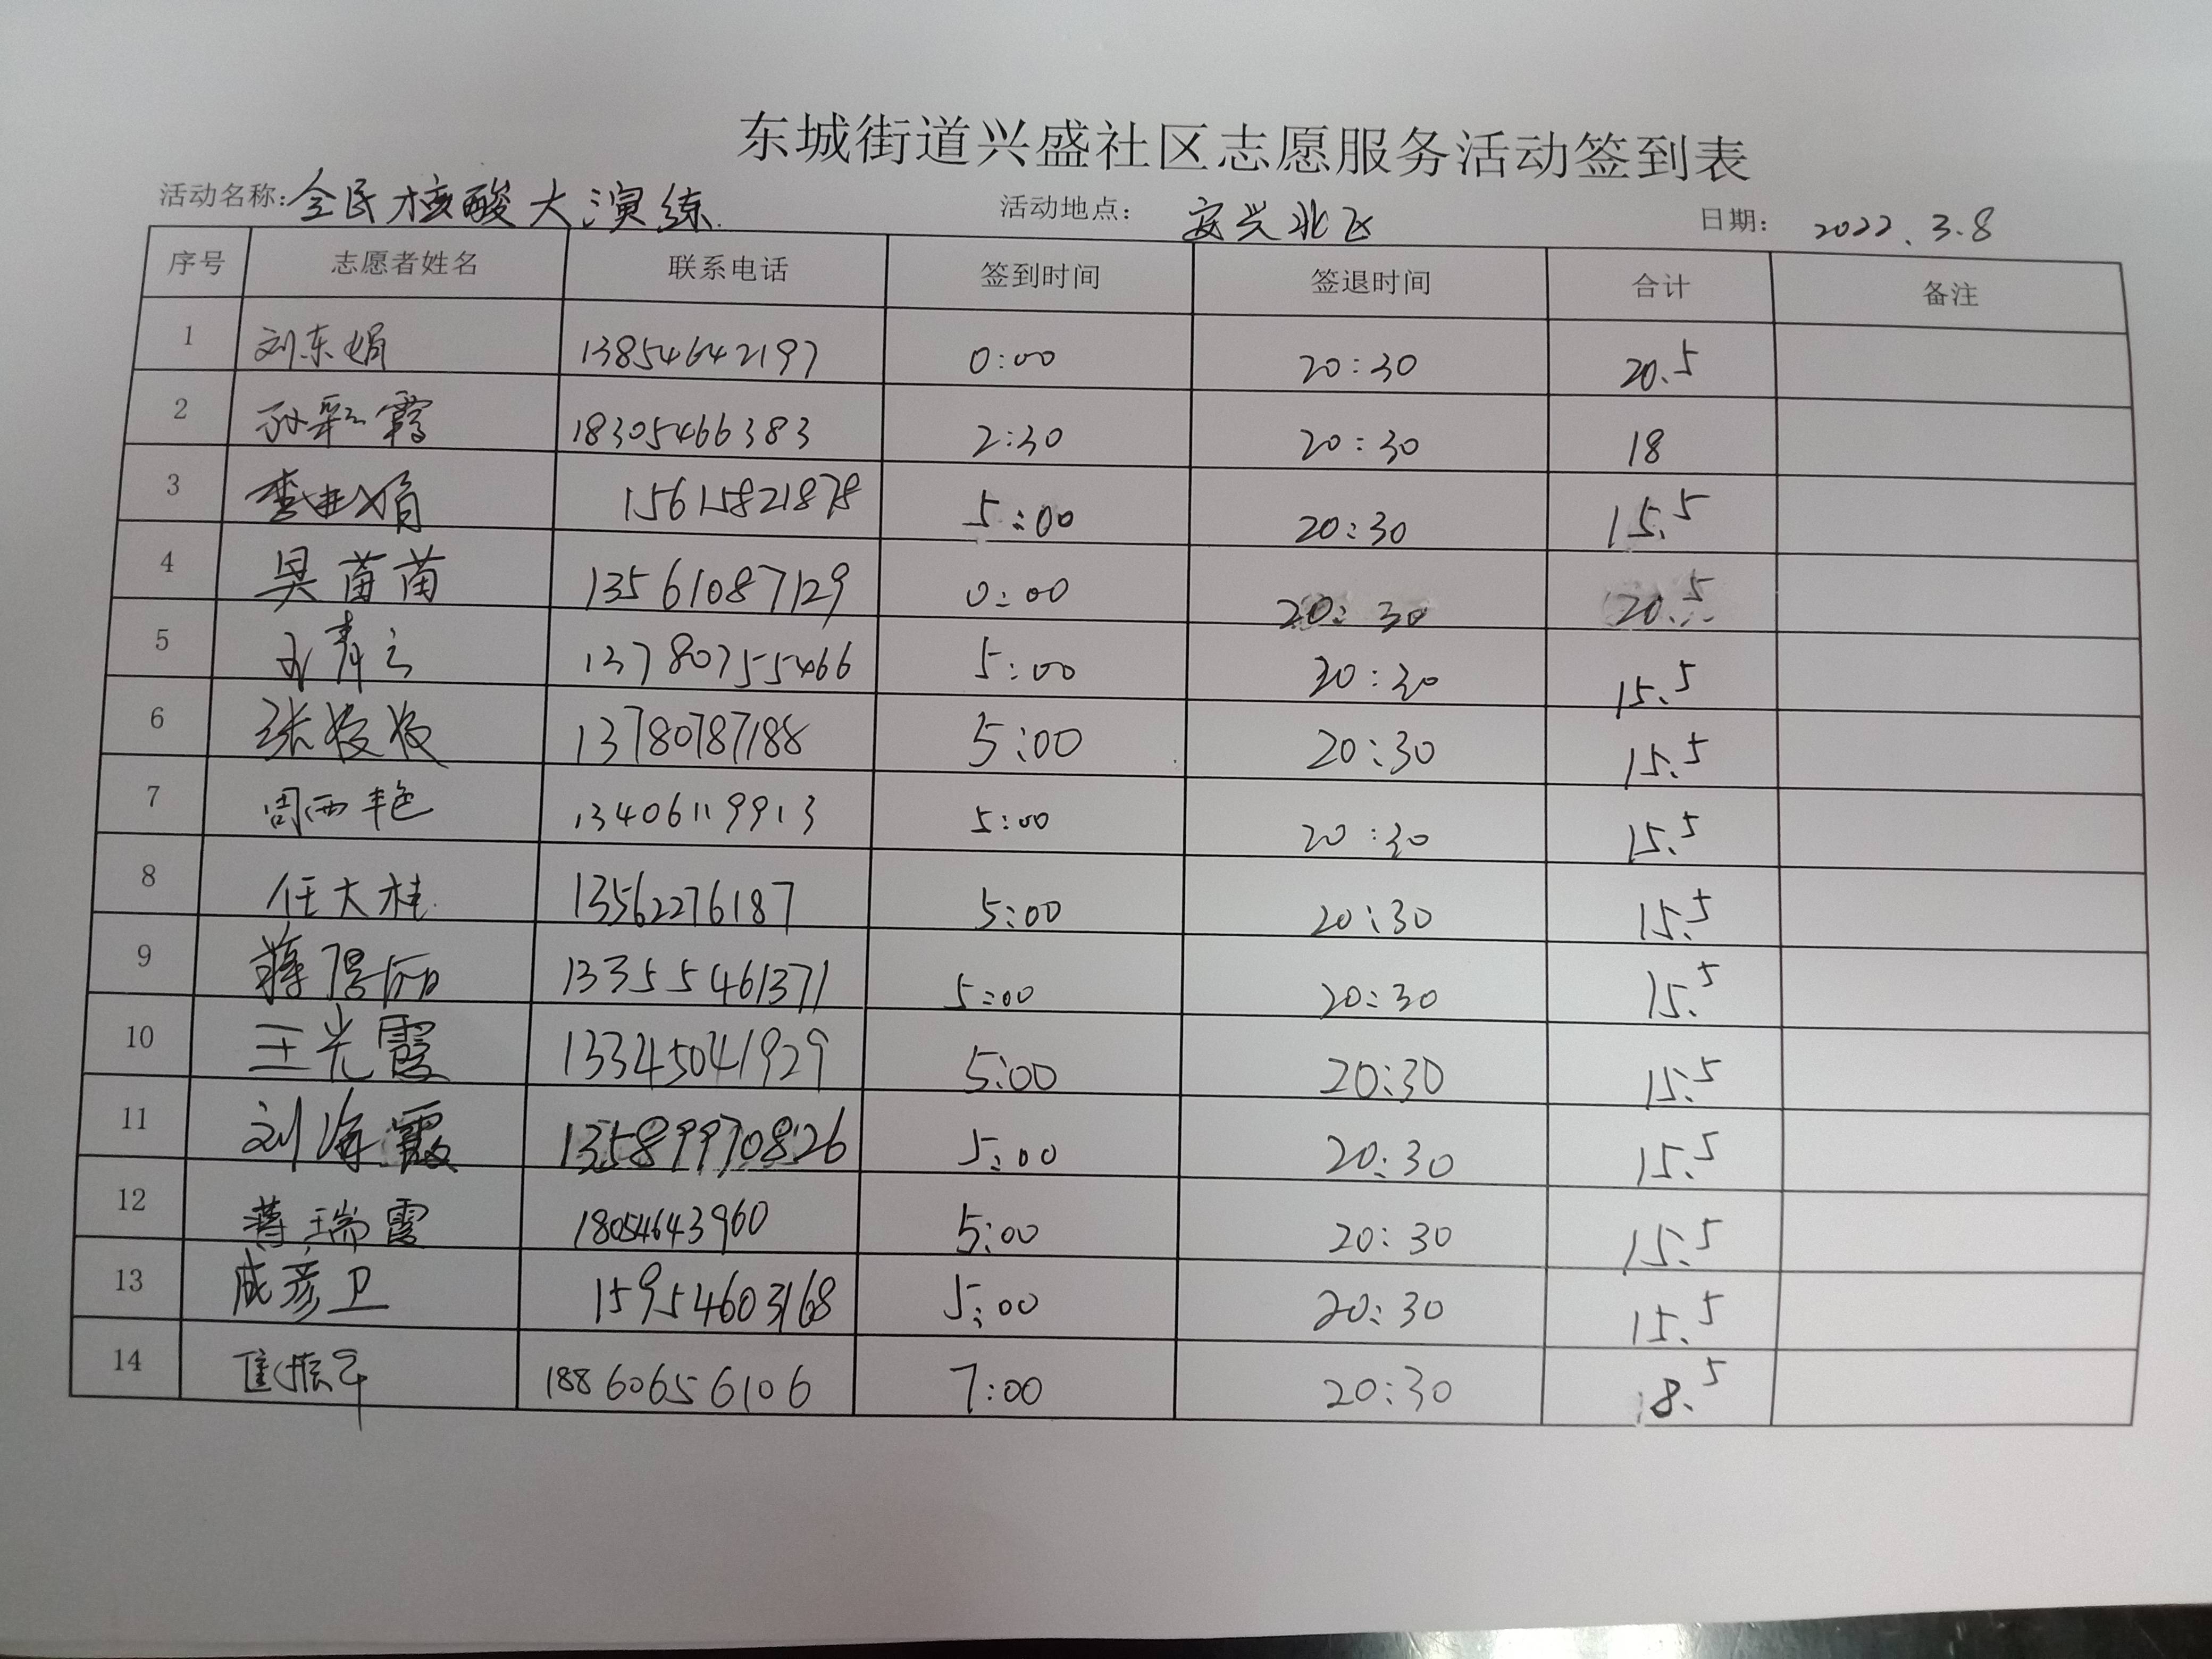 东城街道兴盛社区志愿服务活动签到表
活动名称：全民核酸大演练 活动地点： 安兴北区 日期： 2022.3.8
序号 志愿者姓名 联系电话 签到时间 签退时间 合计 备注
1 刘东娟 13854642197 0:00 20:30 20.5
2 孙彩霞 18305466383 2:30 20:30 18
3 李娟 15615821878 5:00 20:30 15.5
4 吴苗苗 13561087129 0:00 20:30 20.5
5 青云 13780755466 5:00 20:30 15.5
6 张姣姣 13780787188 5:00 20:30 15.5
7 周西艳 13406119913 5:00 20:30 15.5
8 任大桂 13562276187 5:00 20:30 15.5
9 蒋丽 13355461371 5:00 20:30 15.5
10 王光霞 13345041929 5:00 20:30 15.5
11 刘海霞 13589970826 5:00 20:30 15.5
12 蒋瑞霞 18054643960 5:00 20:30 15.5
13 成彦卫 15954603168 5:00 20:30 15.5
14 18860656106 7:00 20:30 8.5